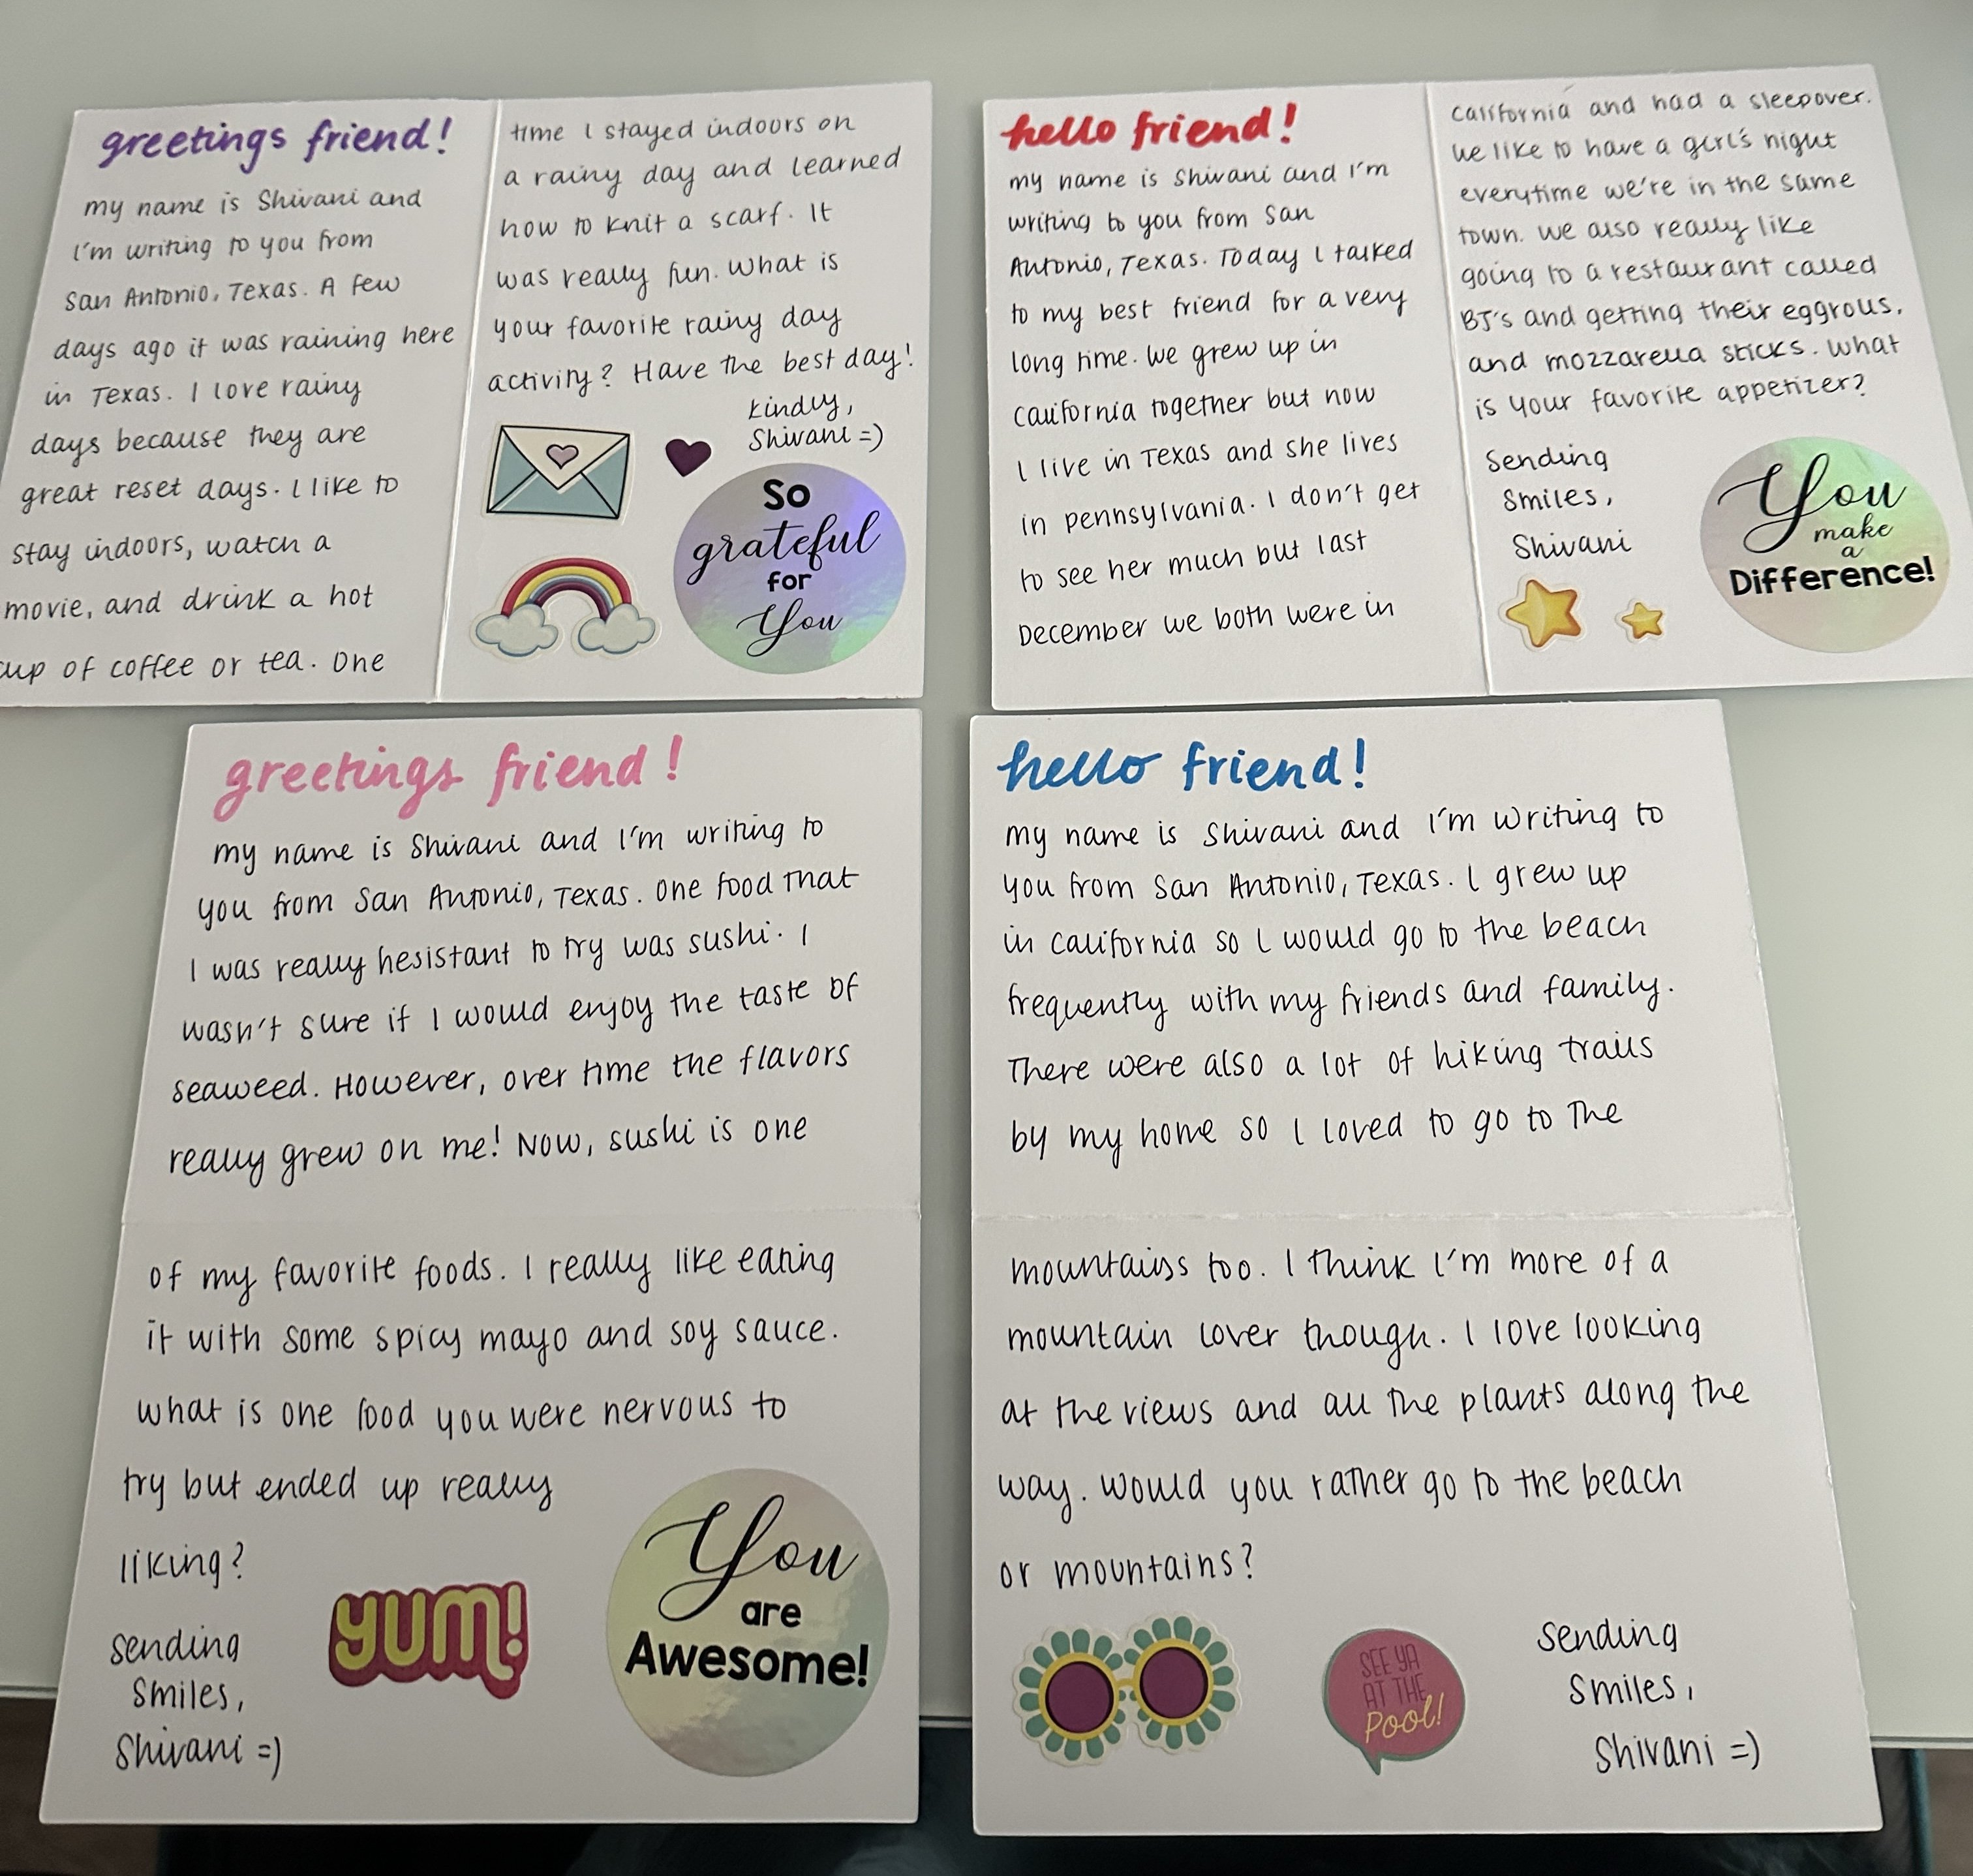 greetings friend!
my name is Shivani and
I'm writing to you from
San Antonio, Texas. A few
days ago it was raining here
in Texas. I love rainy
days because they are
great reset days. I like to
stay indoors, watch a
movie, and drink a hot
cup of coffee or tea. One
time I stayed indoors on
a rainy day and learned
how to knit a scarf. It
was really fun. What is
your favorite rainy day
activity? Have the best day!
Kindly,
Shivani =)
So
grateful
for
You
hello friend!
my name is Shivani and I'm
writing to you from San
Antonio, Texas. Today I talked
to my best friend for a very
long time. We grew up in
California together but now
I live in Texas and she lives
in pennsylvania. I don't get
to see her much but last
December we both were in
California and had a sleepover.
We like to have a girl's night
everytime we're in the same
town. We also really like
going to a restaurant called
BJ's and getting their eggrolls,
and mozzarella sticks. What
is your favorite appetizer?
Sending
Smiles,
Shivani
You
make
a
Difference!
greetings friend!
my name is Shivani and I'm writing to
you from San Antonio, Texas. One food that
I was really hesistant to try was sushi. I
wasn't sure if I would enjoy the taste of
seaweed. However, over time the flavors
really grew on me! Now, sushi is one
of my favorite foods. I really like eating
it with some spicy mayo and soy sauce.
What is one food you were nervous to
try but ended up really
liking?
Sending
Smiles,
Shivani =)
YUM!
You
are
Awesome!
hello friend!
my name is Shivani and I'm writing to
you from San Antonio, Texas. I grew up
in California so I would go to the beach
frequently with my friends and family.
There were also a lot of hiking trails
by my home so I loved to go to the
mountains too. I think I'm more of a
mountain lover though. I love looking
at the views and all the plants along the
way. Would you rather go to the beach
or mountains?
SEE YA
AT THE
Pool!
Sending
Smiles,
Shivani =)